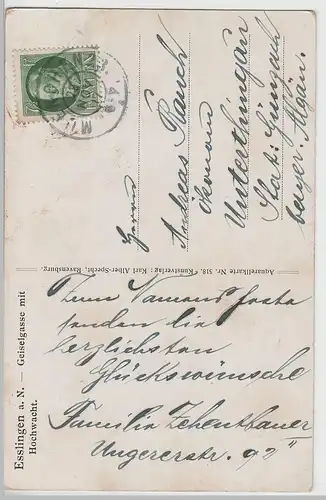 Esslingen a. N. — Geiselgasse mit
Hochwacht.
Zum Namensfeste
senden die
herzlichsten
Glückswünsche
Familie Zehentbauer
Ungererstr. 92 II
Aquarellkarte Nr. 518. Kunstverlag: Karl Alber-Specht, Ravensburg.
Herrn
Andreas Rauch
Ökonom
Unterthingau
Stat: Günzach
bayer. Algäu.
BAYERN